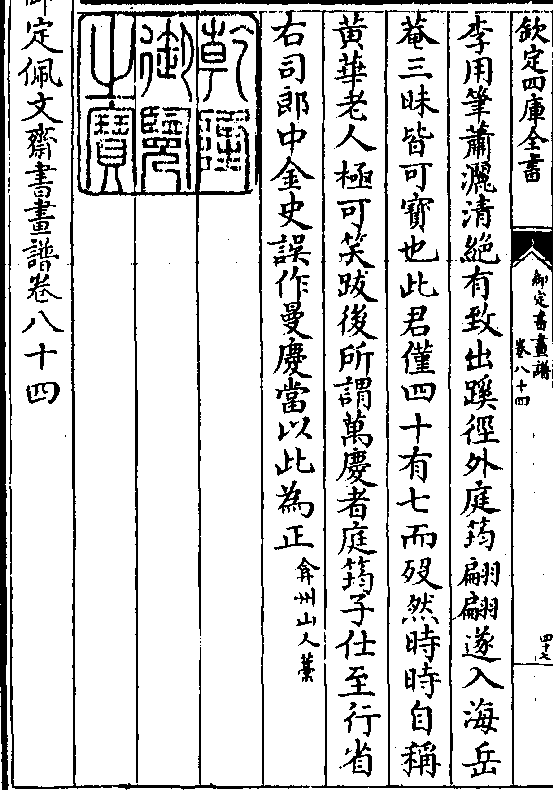 欽定四庫全書
御定書畫譜
卷八十四
四十七
李用筆蕭灑清絶有致出蹊徑外庭筠翩翩遂入海岳
菴三昧皆可寶也此君僅四十有七而殁然時時自稱
黄華老人極可笑跋後所謂萬慶者庭筠子仕至行省
右司郎中金史誤作曼慶當以此為正弇州山人藁
乾隆
御覽
之寶
御定佩文齋書畫譜卷八十四